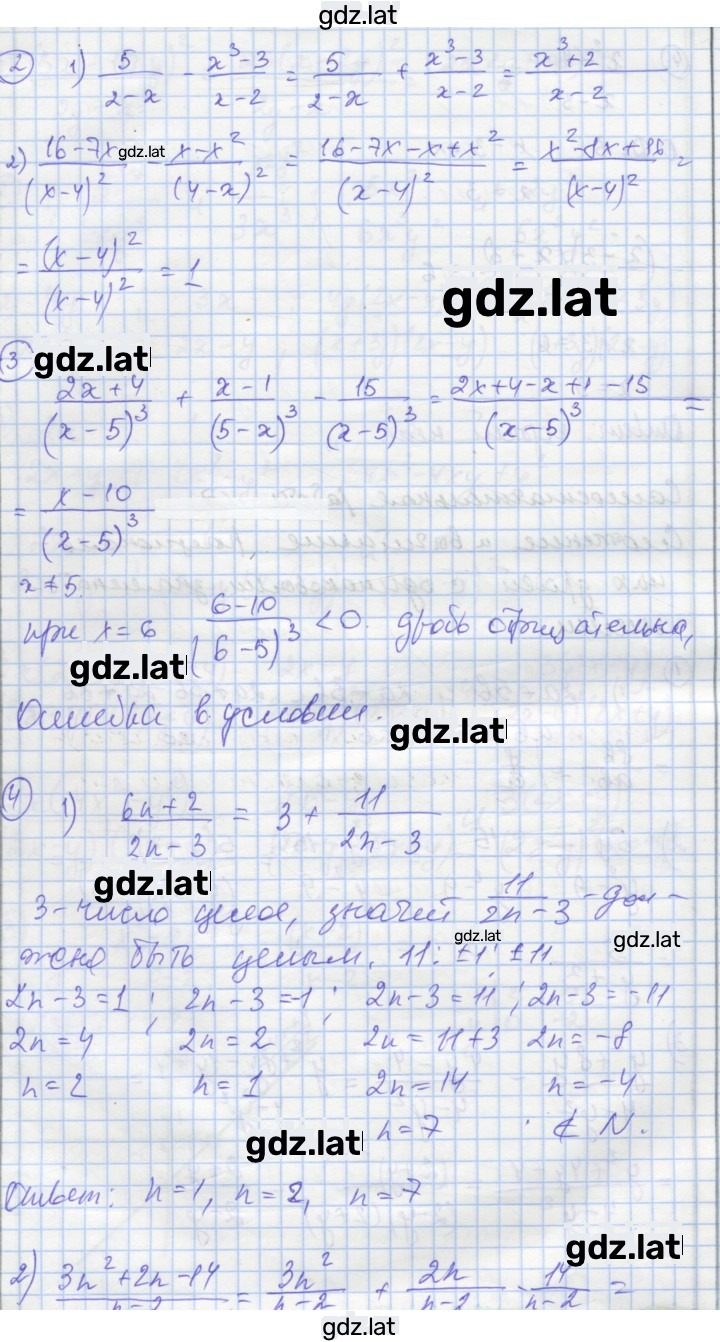 gdz.lat
② 1) 5/(2-x) - (x³-3)/(x-2) = 5/(2-x) + (x³-3)/(x-2) = (x³+2)/(x-2)
2) (16-7x)/(x-4)² gdz.lat (x-x²)/(4-x)² = (16-7x-x+x²)/(x-4)² = (x²-8x+16)/(x-4)² =
= (x-4)²/(x-4)² = 1
gdz.lat
③ gdz.lat
(2x+4)/(x-5)³ + (x-1)/(5-x)³ - 15/(x-5)³ = (2x+4-x+1-15)/(x-5)³ =
= (x-10)/(x-5)³
x≠5.
при x=6 (6-10)/(6-5)³ <0. дробь отрицательна,
gdz.lat
Ошибка в условии.
gdz.lat
④ 1) (6n+2)/(2n-3) = 3 + 11/(2n-3)
gdz.lat
3-число целое, значит 11/(2n-3) - дол-
gdz.lat
gdz.lat
жно быть целым. 11: ±1; ±11.
2n-3=1; 2n-3=-1; 2n-3=11; 2n-3=-11
2n=4 2n=2 2n=11+3 2n=-8
n=2 n=1 2n=14 n=-4
gdz.lat n=7 ∉ N.
Ответ: n=1, n=2, n=7
gdz.lat
2) (3n²+2n-14)/(n-2) = 3n²/(n-2) + 2n/(n-2) - 14/(n-2) =
gdz.lat